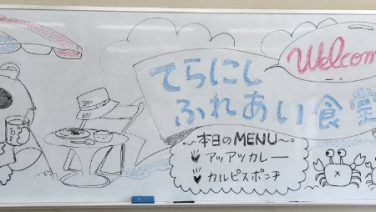 Welcom
てらにし
ふれあい食堂
本日のMENU〜
アッアツカレー
カルピスポンチ